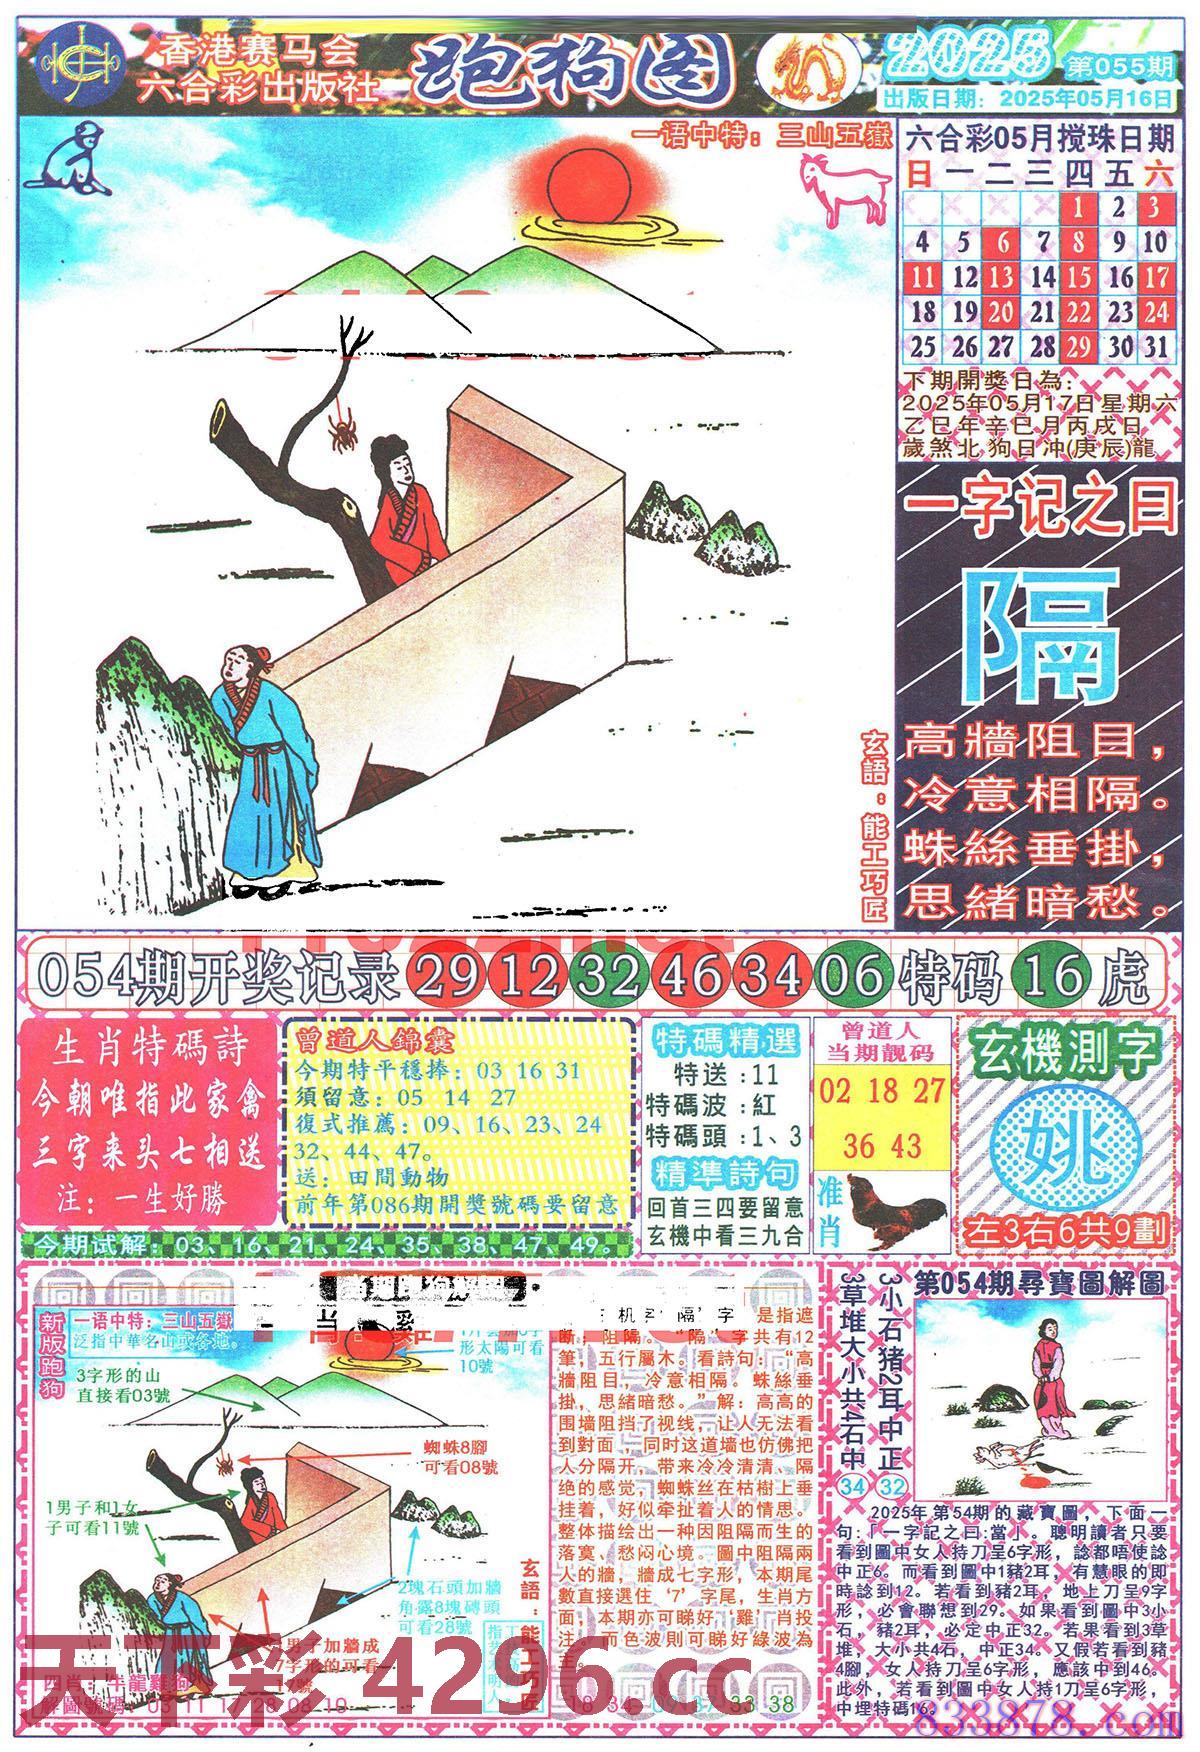 香港赛马会
六合彩出版社
跑狗图
2025
第055期
出版日期：2025年05月16日
一语中特：三山五嶽
玄語：能工巧匠
六合彩05月搅珠日期
日 一 二 三 四 五 六
1 2 3
4 5 6 7 8 9 10
11 12 13 14 15 16 17
18 19 20 21 22 23 24
25 26 27 28 29 30 31
下期開獎日為：
2025年05月17日星期六
乙巳年辛巳月丙戌日
歲煞北 狗日冲(庚辰)龍
一字记之曰
隔
高牆阻目，
冷意相隔。
蛛絲垂掛，
思緒暗愁。
054期开奖记录 29 12 32 46 34 06 特码 16 虎
生肖特碼詩
今朝唯指此家禽
三字来头七相送
注：一生好勝
曾道人錦囊
今期特平穩捧：03 16 31
須留意：05 14 27
復式推薦：09、16、23、24
32、44、47。
送：田間動物
前年第086期開獎號碼要留意
今期试解：03、16、21、24、35、38、47、49。
特碼精選
特送：11
特碼波：紅
特碼頭：1、3
精準詩句
回首三四要留意
玄機中看三九合
曾道人
当期靓码
02 18 27
36 43
准肖
玄機測字
姚
左3右6共9劃
新版跑狗
一语中特：三山五嶽
泛指中華名山或各地。
3字形的山
直接看03號
形太陽可看
10號
蜘蛛8腳
可看08號
1男子和1女
子可看11號
2塊石頭加牆
角露8塊磚頭
可看28號
男子加牆成
7字形的可看
17號
玄語：能工巧匠
四肖：牛龍雞狗
机字“隔”字 是指遮
断；阻隔。“隔”字共有12
筆，五行屬木。看詩句：“高
牆阻目，冷意相隔。蛛絲垂
掛，思緒暗愁。”解：高高的
围墙阻挡了视线，让人无法看
到對面，同时这道墙也仿佛把
人分隔开，带来冷冷清清、隔
绝的感觉，蜘蛛丝在枯樹上垂
挂着，好似牵扯着人的情思。
整体描绘出一种因阻隔而生的
落寞、愁闷心境。圖中阻隔兩
人的牆，牆成七字形，本期尾
數直接選住‘7’字尾，生肖方
面，本期亦可睇好‘雞’肖投
注。而色波則可睇好綠波為
主。
第054期尋寶圖解圖
3小石猪2耳中正 32
3草堆大小共4石中 34
2025年第54期的藏寶圖，下面一
句：「一字記之曰：當」。聰明讀者只要
看到圖中女人持刀呈6字形，諗都唔使諗
中正6。而看到圖中1豬2耳，有慧眼的即
時諗到12。若看到豬2耳，地上刀呈9字
形，必會聯想到29。如果看到圖中3小
石，豬2耳，必定中正32。若果看到3草
堆，大小共4石，中正34。又假若看到豬
4腳，女人持刀呈6字形，應該中到46。
此外，若看到圖中女人持1刀呈6字形，
中埋特碼16。
天下彩 4296.cc
833878.com